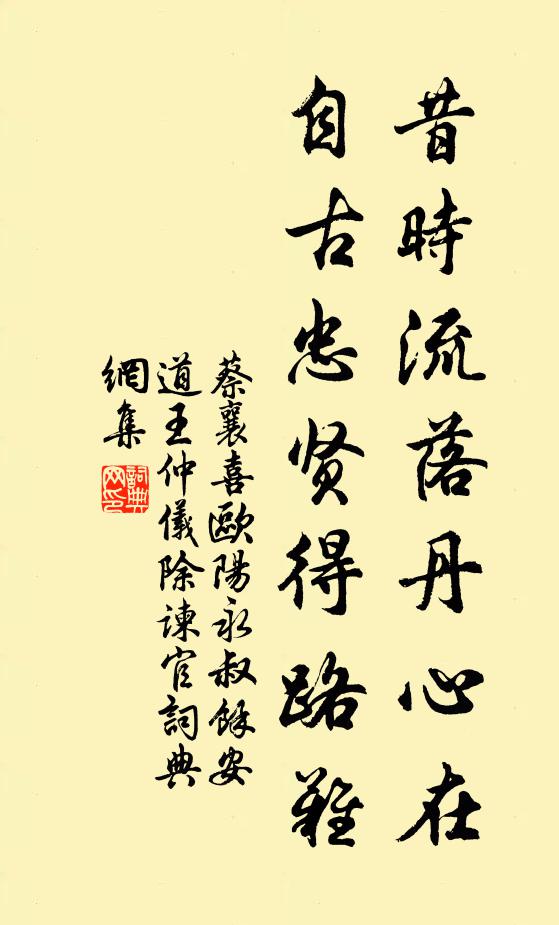 昔時流落丹心在
自古忠贤得路難
蔡襄喜歐陽永叔餘安
道王仲儀除諫官詞典
網集
詞典
网印